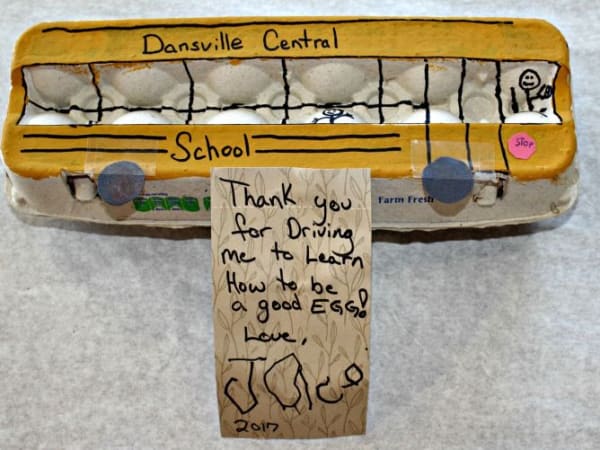 Dansville Central
School
STOP
Farm Fresh
Thank you
for Driving
me to Learn
How to be
a good EGG!
Love,
JACe
2017